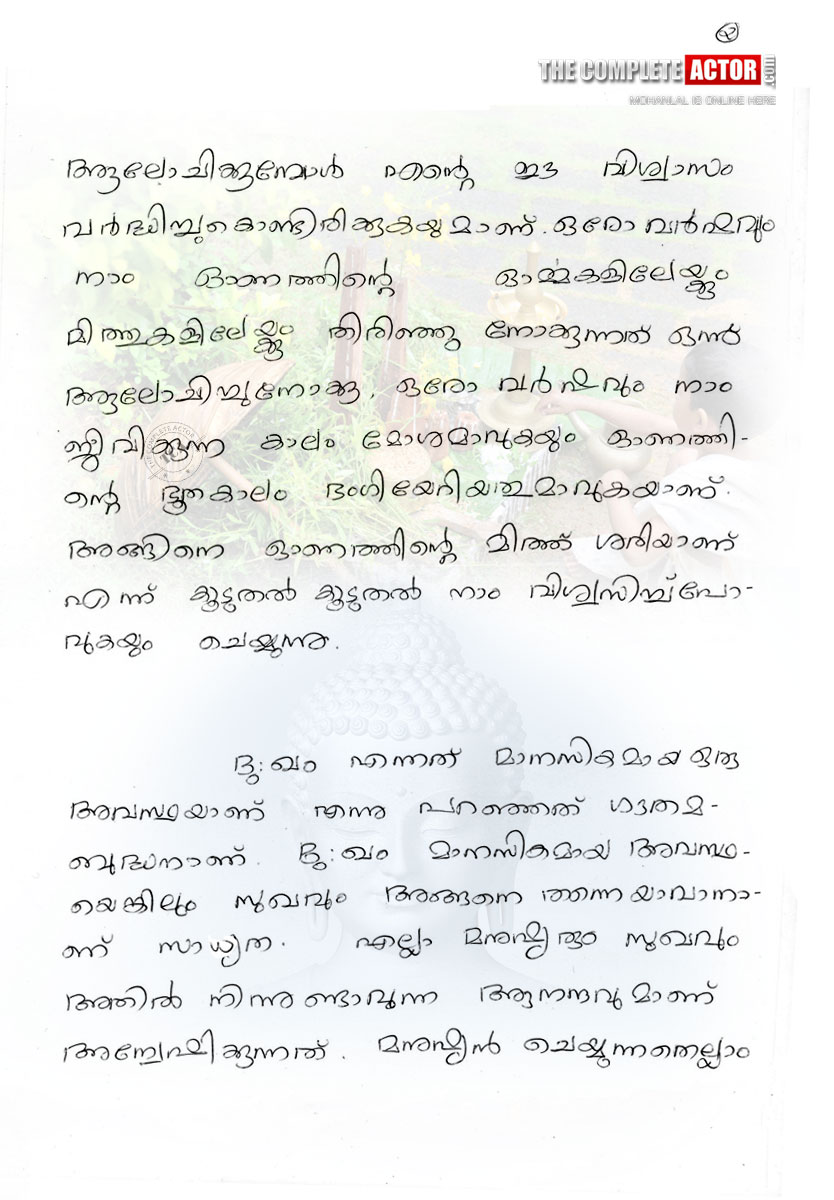 ②
THE COMPLETE ACTOR .COM
MOHANLAL IS ONLINE HERE
ആലോചിക്കുമ്പോൾ എന്റെ ഈ വിശ്വാസം
വർദ്ധിച്ചുകൊണ്ടിരിക്കുകയുമാണ്. ഓരോ വർഷവും
നാം ഓണത്തിന്റെ ഓർമ്മകളിലേയ്ക്കും
മിത്തുകളിലേയ്ക്കും തിരിഞ്ഞു നോക്കുന്നത് ഒന്ന്
ആലോചിച്ചുനോക്കൂ. ഓരോ വർഷവും നാം
ജീവിക്കുന്ന കാലം മോശമാവുകയും ഓണത്തി-
ന്റെ ഭൂതകാലം ഭംഗിയേറിയതുമാവുകയാണ്.
അങ്ങിനെ ഓണത്തിന്റെ മിത്ത് ശരിയാണ്
എന്ന് കൂടുതൽ കൂടുതൽ നാം വിശ്വസിച്ച്പോ-
വുകയും ചെയ്യുന്നു.
ദു:ഖം എന്നത് മാനസികമായ ഒരു
അവസ്ഥയാണ് എന്നു പറഞ്ഞത് ഗൗതമ-
ബുദ്ധനാണ്. ദു:ഖം മാനസികമായ അവസ്ഥ-
യെങ്കിലും സുഖവും അങ്ങനെ തന്നെയാവാനാ-
ണ് സാധ്യത. എല്ലാ മനുഷ്യരും സുഖവും
അതിൽ നിന്നുണ്ടാവുന്ന ആനന്ദവുമാണ്
അന്വേഷിക്കുന്നത്. മനുഷ്യൻ ചെയ്യുന്നതെല്ലാം